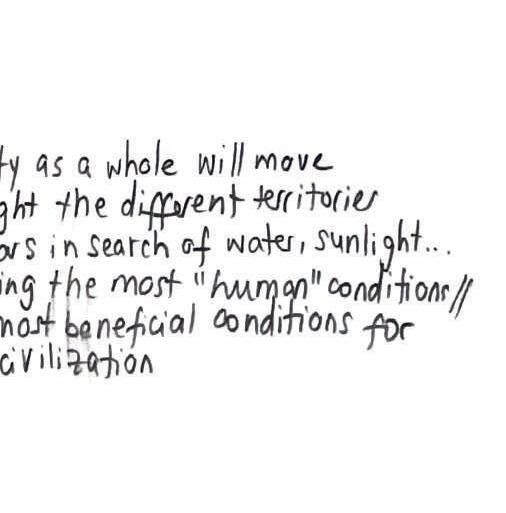 ty as a whole will move
ght the different territories
ars in search of water, sunlight...
ing the most "human" conditions//
most beneficial conditions for
civilization